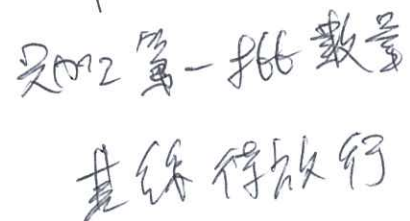 只加工第一批数量
其馀待放行